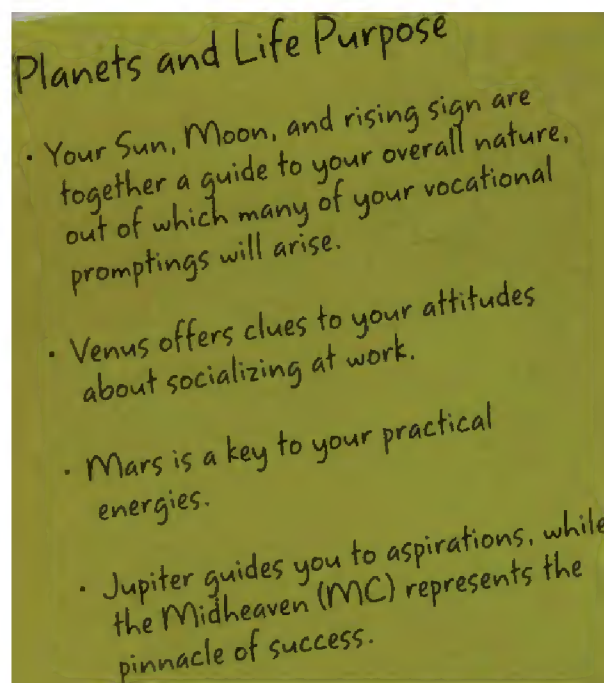 Planets and Life Purpose
• Your Sun, Moon, and rising sign are
together a guide to your overall nature,
out of which many of your vocational
promptings will arise.
• Venus offers clues to your attitudes
about socializing at work.
• Mars is a key to your practical
energies.
• Jupiter guides you to aspirations, while
the Midheaven (MC) represents the
pinnacle of success.